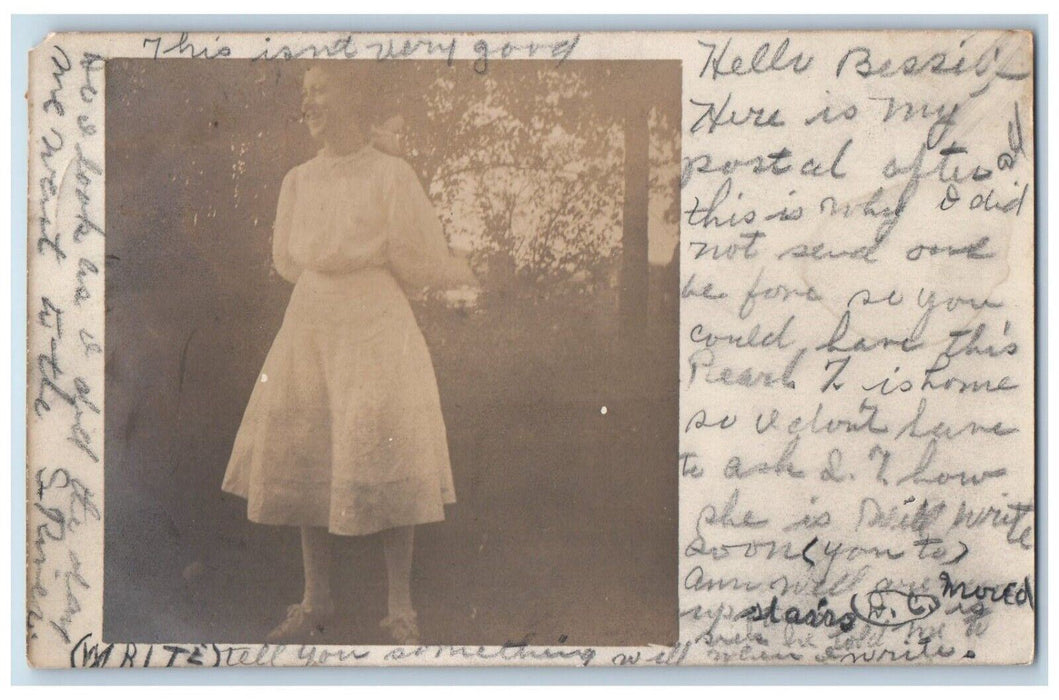 This isn't very good
Hello Bessie
Here is my
postal after all
this is why I did
not send one
be fore so you
could have this
Pearl Z is home
so I don't have
to ask I. Z how
she is Will write
soon (you to)
Ann will are moved
up stairs is
sick told me to
(WRITE) tell you something will when I write.
Do I look as I did the day
we went to the